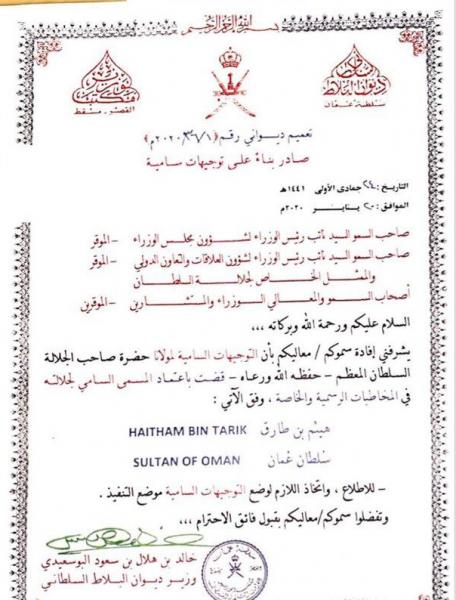 بسم الله الرحمن الرحيم
ديوان البلاط
سلطنة عمان
القصر ـ مسقط
تعميم ديواني رقم (٢٠٢٠/٣/١م)
صادر بناءً على توجيهات سامية
التاريخ : ٢٤ جمادى الأولى ١٤٤١هـ
الموافق : ٢٠ ينايـر ٢٠٢٠م
صاحب السمو السيد نائب رئيس الوزراء لشؤون مجلس الوزراء – الموقر
صاحب السمو السيد نائب رئيس الوزراء لشؤون العلاقات والتعاون الدولي – الموقر
والممثل الخاص لجلالة السلطان
أصحاب السمو والمعالي الوزراء والمستشارين – الموقرين
السلام عليكم ورحمة الله وبركاته ،،،
يشرفني إفادة سموكم / معاليكم بأن التوجيهات السامية لمولانا حضرة صاحب الجلالة
السلطان المعظم – حفظه الله ورعاه – قضت باعتماد المسمى السامي لجلالته
في المخاطبات الرسمية والخاصة ، وفق الآتي :
هيثم بن طارق HAITHAM BIN TARIK
سلطان عمان SULTAN OF OMAN
– للاطلاع ، واتخاذ اللازم لوضع التوجيهات السامية موضع التنفيذ .
وتفضلوا سموكم/معاليكم بقبول فائق الاحترام ،،،
خالد بن هلال بن سعود البوسعيدي
وزير ديوان البلاط السلطاني